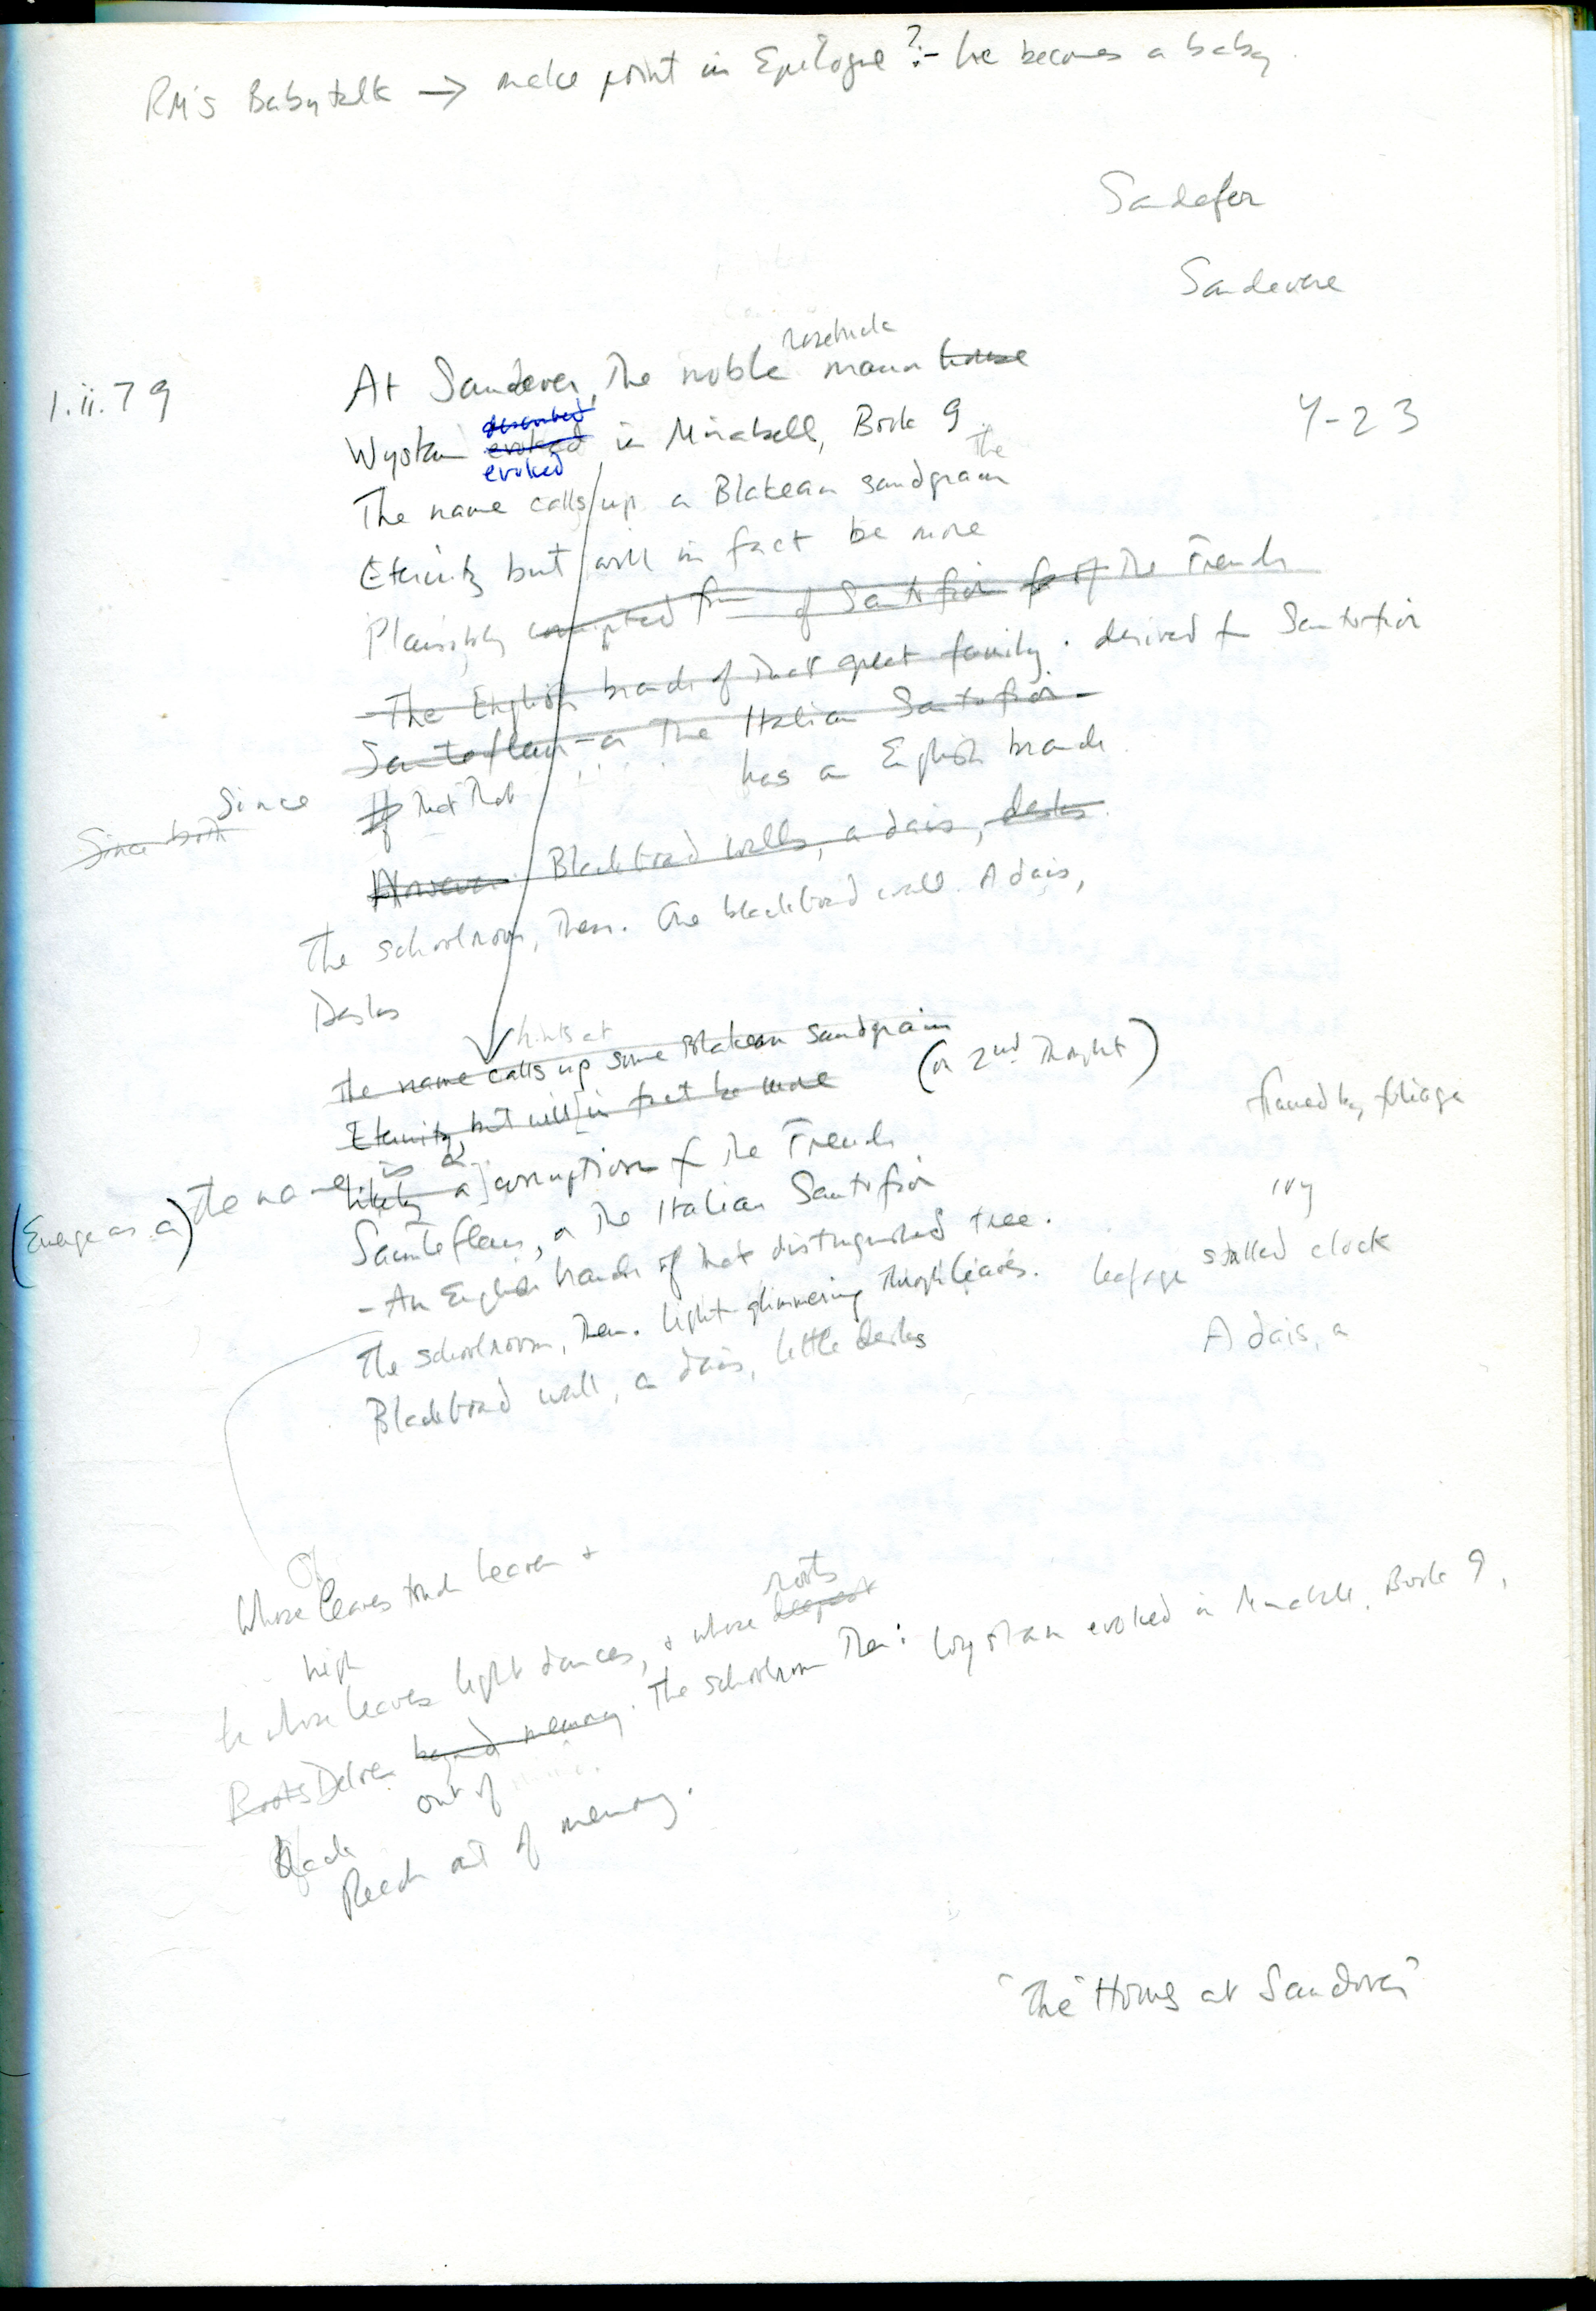 RM's Babytalk → make point in Epilogue?:- he becomes a baby.
Sandefer
Sandevere
1.ii.79
rosebrick
At Sandover, the noble manor house
Y-23
described
Wystan evoked in Mirabell, Book 9.
evoked
the
The name calls up a Blakean sandgrain
Eternity but will in fact be more
Plausibly corrupted from of Santofior of the French
- The English branch of that great family. derived fr Santofior
Saintefleur - or the Italian Santofior -
has an English branch.
Since
If that That
Since both
However Blackboard walls, a dais, desks.
The schoolroom, then. One blackboard wall. A dais,
Desks
hints at
The name calls up some Blakean sandgrain
(on 2nd thought)
Eternity, but will in fact be more
framed by foliage
is a
(Emerge as a) the name likely a corruption of the French
ivy
Saintefleur, or the Italian Santofior
- An English branch of that distinguished tree.
leafage stalled clock
The schoolroom, then. Light glimmering through leaves.
A dais, a
Blackboard wall, a dais, little desks
Of
Whose leaves touch heaven +
high
In whose leaves light dances, + whose deepest
roots
Roots Delve beyond memory. The schoolroom then: Wystan evoked in Mirabell, Book 9,
out of
Reach out of memory.
"The" House at Sandover"